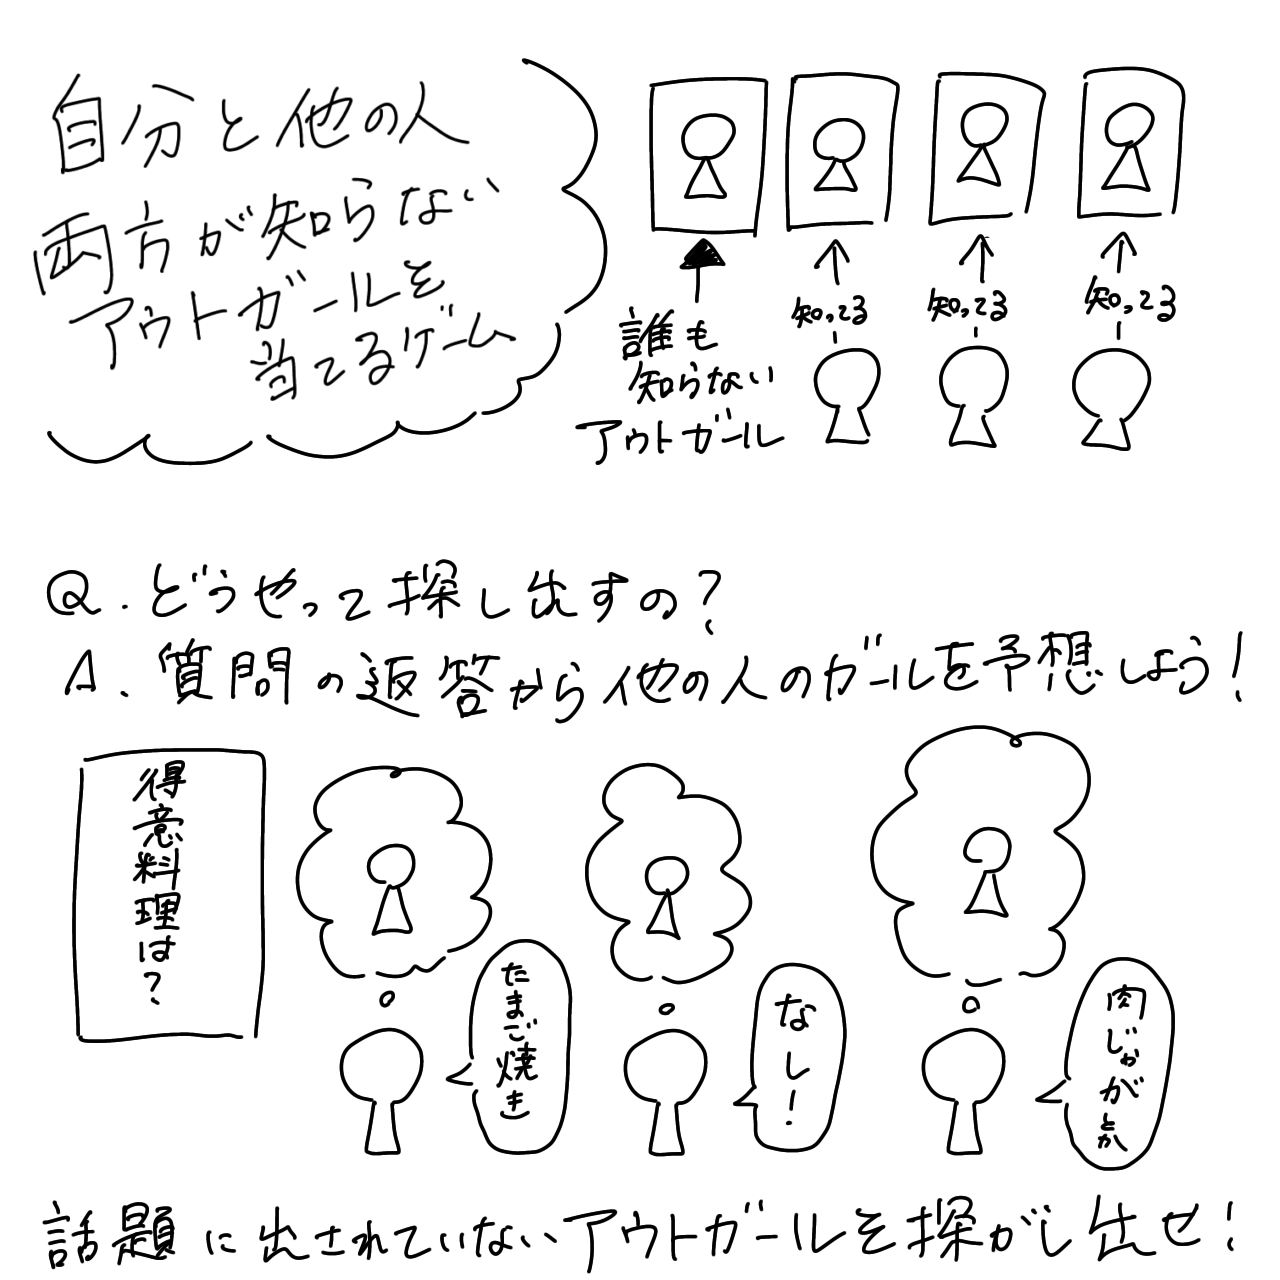 自分と他の人
両方が知らない
アウトガールを
当てるゲーム
誰も
知らない
アウトガール
知ってる
知ってる
知ってる
Q.どうやって探し出すの?
A.質問の返答から他の人のガールを予想しよう!
得意料理は?
たまご焼き
なし!
肉じゃがとか
話題に出されていないアウトガールを探がし出せ!